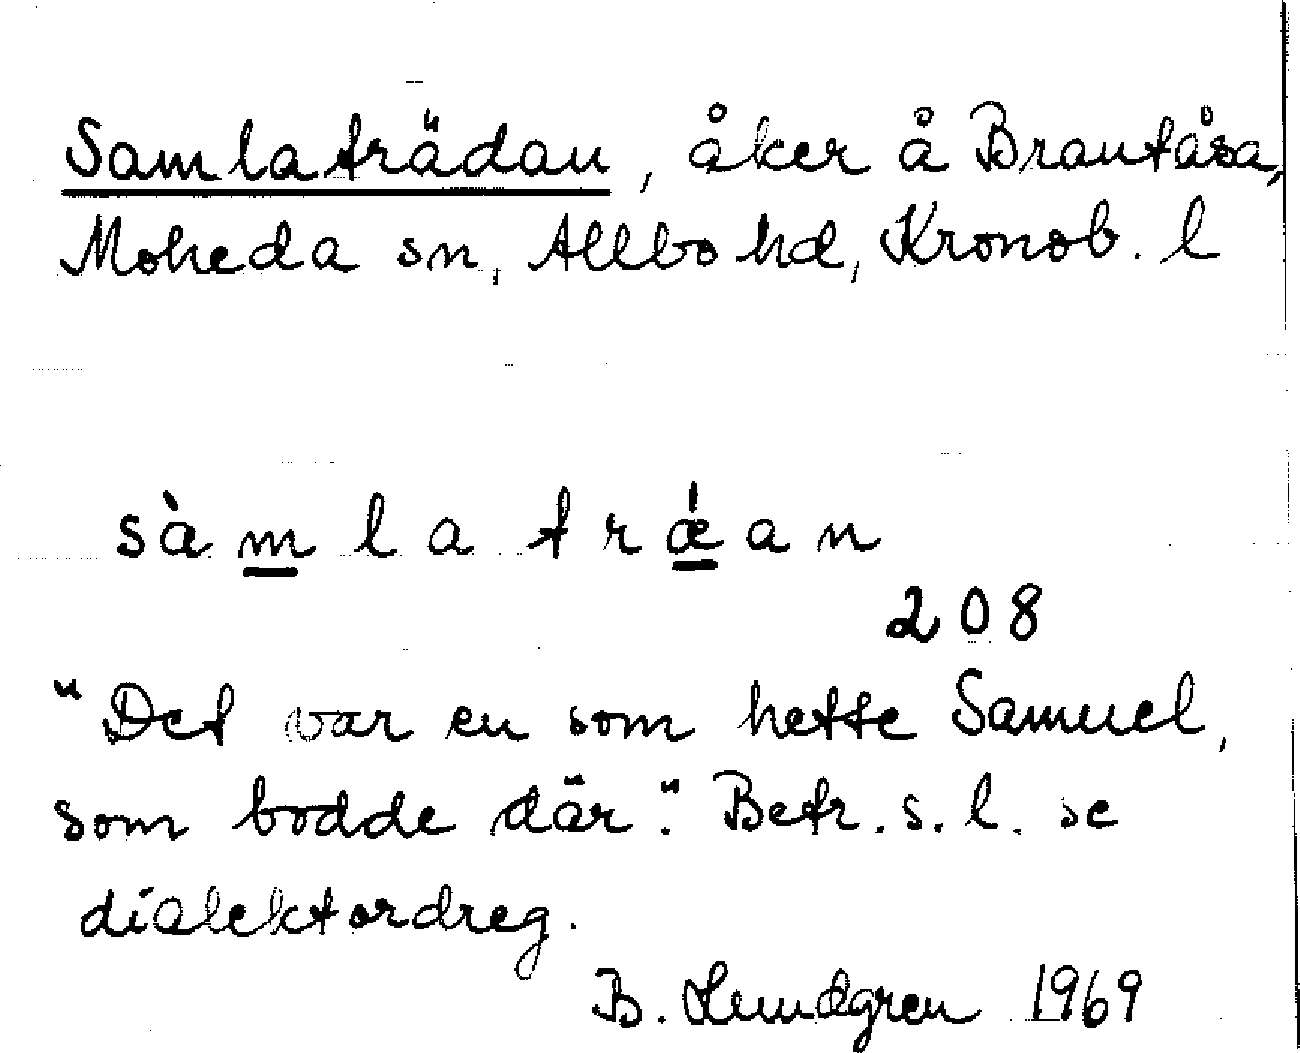 Samlaträdan, åker å Brantåsa,
Moheda sn, Allbo hd, Kronob. l
sàm̲latrǽ̲an
208
"Det var en som hette Samuel,
som bodde där". Betr. s. l. se
dialektordreg.
B. Lundgren 1969